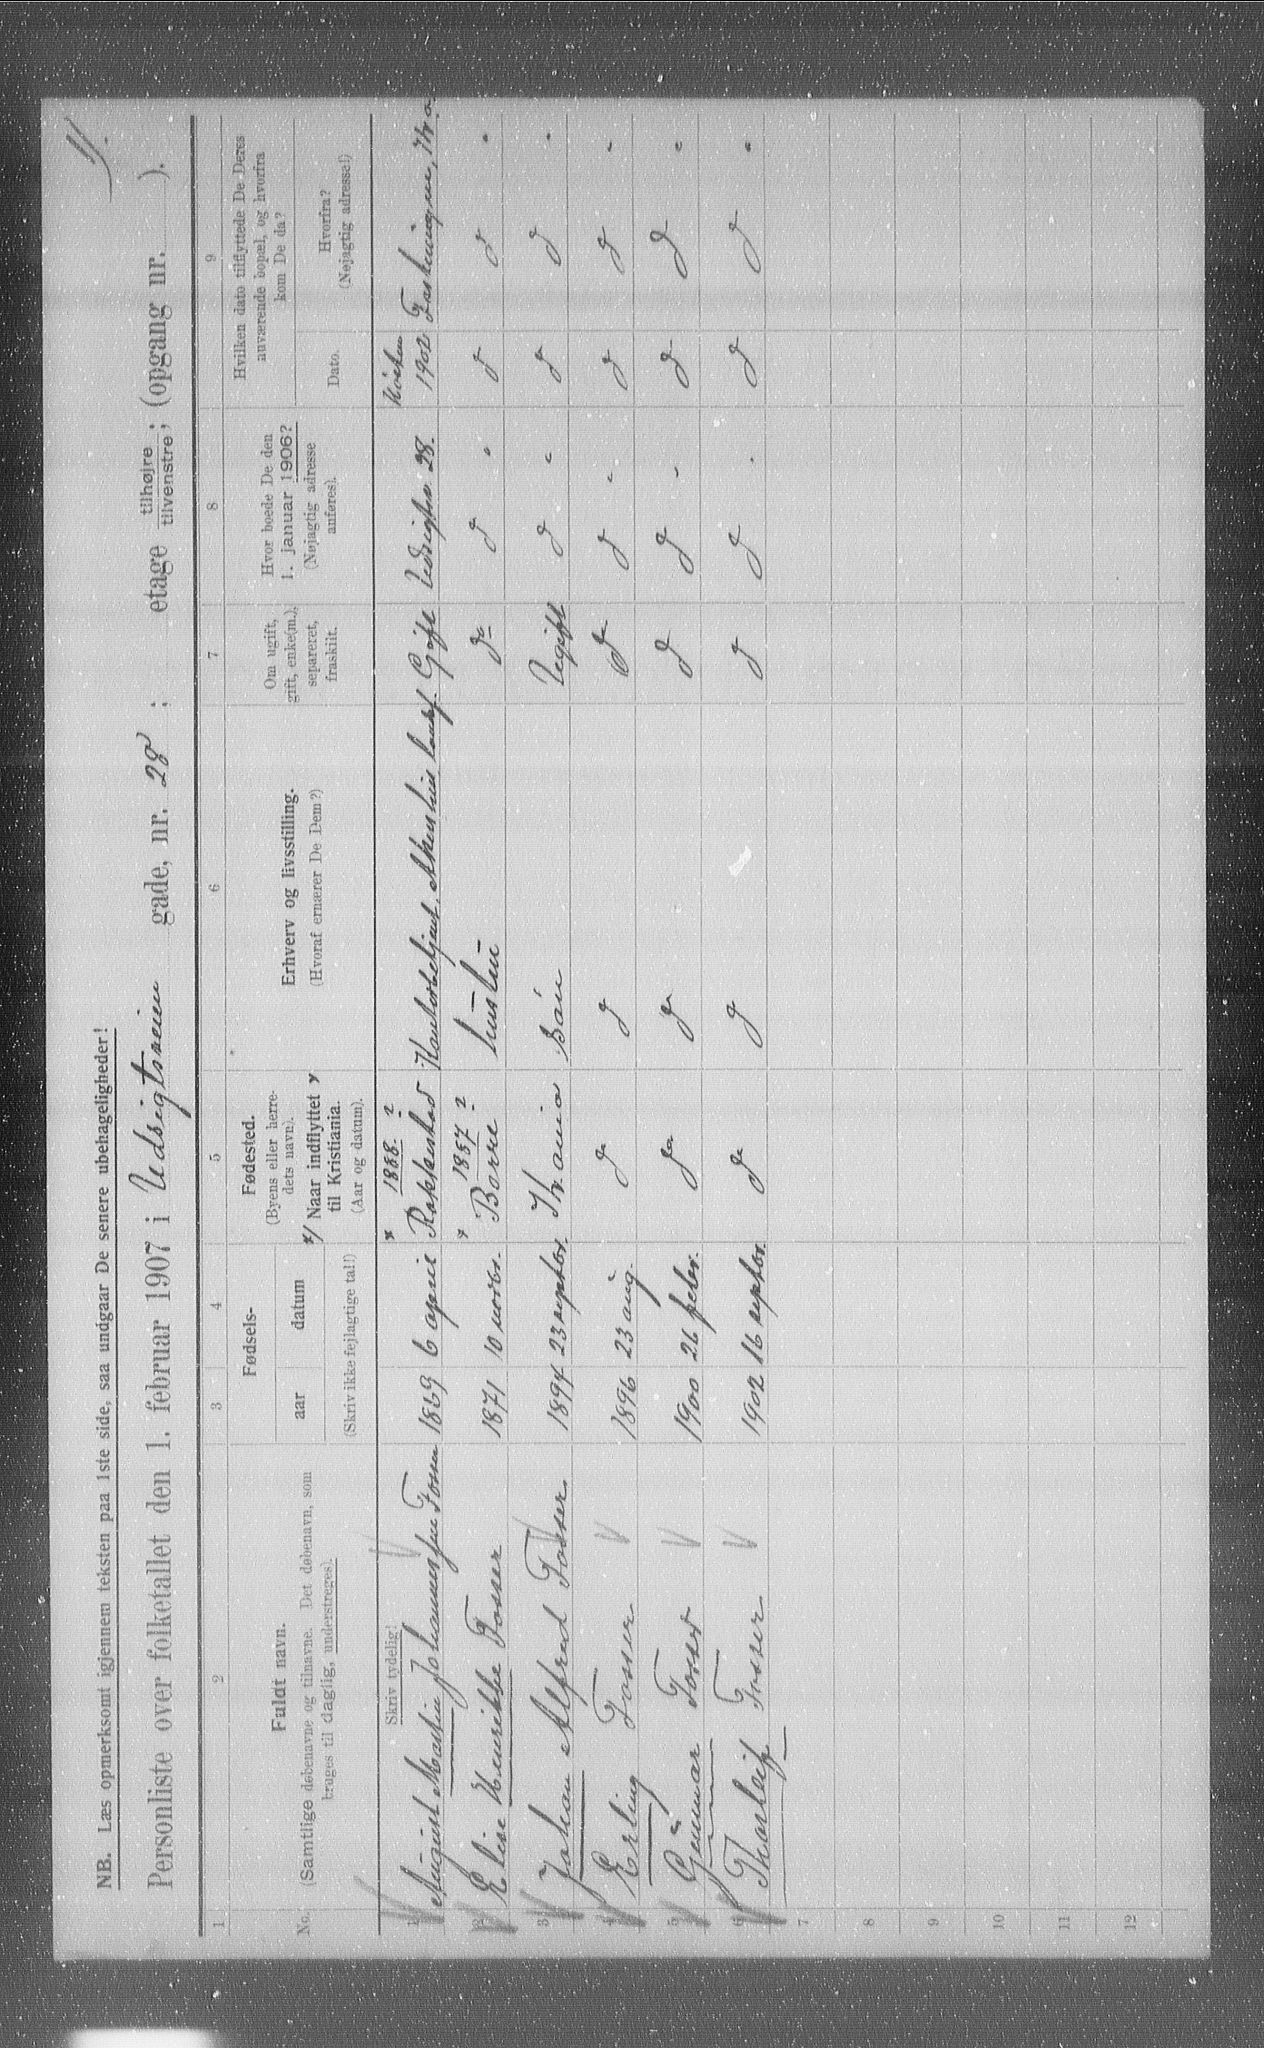 NB. Læs opmerksomt igjennem teksten paa 1ste side, saa undgaar De senere ubehageligheder!
Personliste over folketallet den 1. februar 1907 i Udsigtsveien gade, nr. 28; etage tilhøjre tilvenstre; (opgang nr. ).
1 2 3 4 5 6 7 8 9
No.
Fuldt navn.
(Samtlige døbenavne og tilnavne. Det døbenavn, som
bruges til daglig, understreges).
Skriv tydelig!
Fødsels-
aar datum
(Skriv ikke fejlagtige tal!)
Fødested.
(Byens eller herre-
dets navn).
*/ Naar indflyttet
til Kristiania.
(Aar og datum).
Erhverv og livsstilling.
(Hvoraf ernærer De Dem?)
Om ugift,
gift, enke(m.),
separeret,
fraskilt.
Hvor boede De den
1. januar 1906?
(Nøjagtig adresse
anføres).
Hvilken dato tilflyttede De Deres
nuværende bopæl, og hvorfra
kom De da?
Dato.
Hvorfra?
(Nøjagtig adresse!)
* 1888. Høsten
1 August Martin Johannes Fosser 1869 6 april Rakkestad Gift Udsigtsv. 28. 1902
* 1887
2 Elise Henrikke Fosser 1871 10 novbr. Borre hustru do d " d d "
3 Johan Alfred Fosser 1894 23 septbr. Kr.ania Barn Ugift d " d d "
4 Erling Fosser 1896 23 aug. d d do d " d d "
5 Gunnar Fosser 1900 26 febr. do do d d " d d "
6 Thorleif Fosser 1902 16 septbr. do d d d " d d "
7
8
9
10
11
12